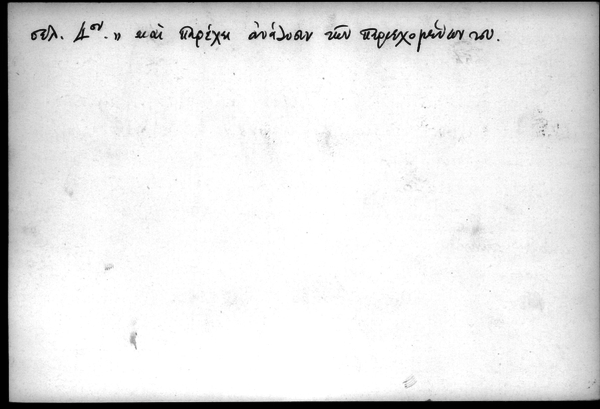 σελ. 4ον. „ καὶ παρέχει ἀνάλυσιν τῶν περιεχομένων του.